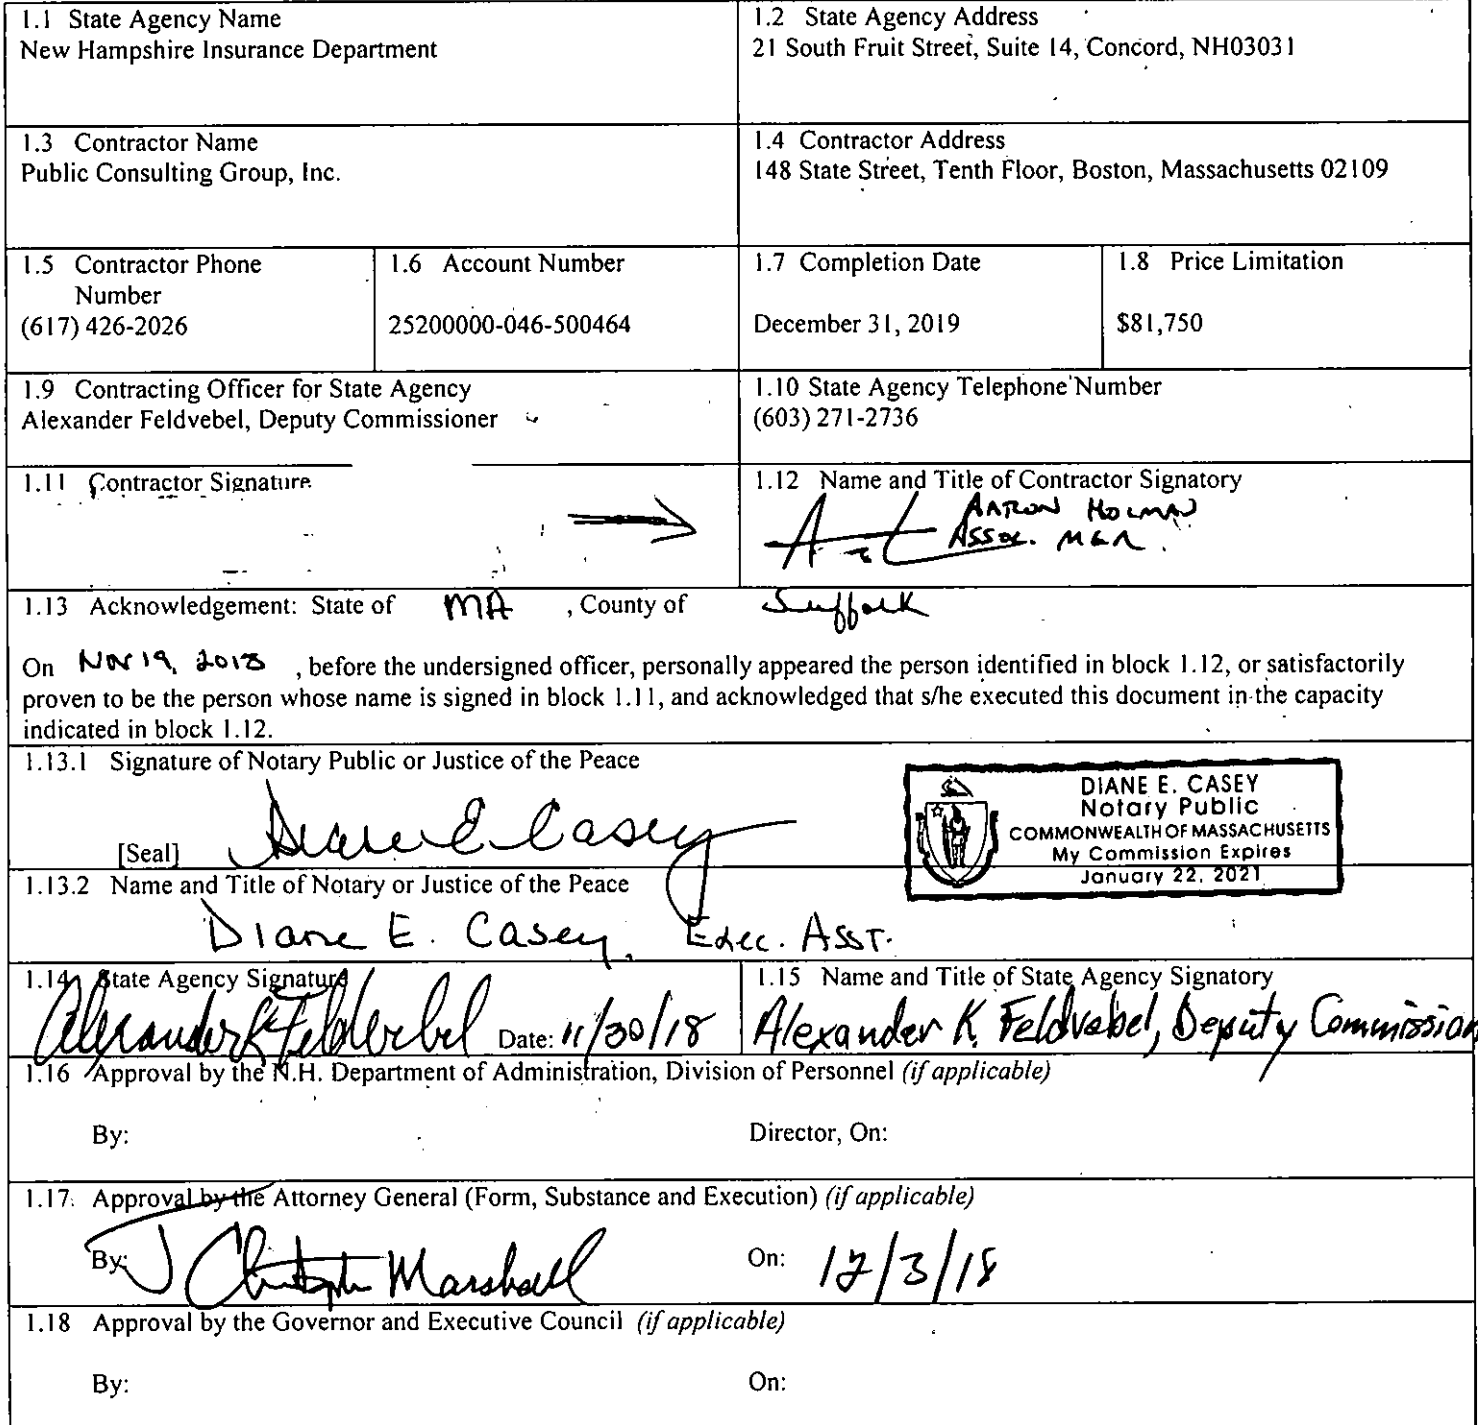 1.1 State Agency Name
New Hampshire Insurance Department
1.2 State Agency Address
21 South Fruit Street, Suite 14, Concord, NH03031
1.3 Contractor Name
Public Consulting Group, Inc.
1.4 Contractor Address
148 State Street, Tenth Floor, Boston, Massachusetts 02109
1.5 Contractor Phone
Number
(617) 426-2026
1.6 Account Number
25200000-046-500464
1.7 Completion Date
December 31, 2019
1.8 Price Limitation
$81,750
1.9 Contracting Officer for State Agency
Alexander Feldvebel, Deputy Commissioner
1.10 State Agency Telephone Number
(603) 271-2736
1.11 Contractor Signature
1.12 Name and Title of Contractor Signatory
AARON HOLMAN
ASSOC. MGR.
1.13 Acknowledgement: State of MA , County of Suffolk
On Nov 19, 2018 , before the undersigned officer, personally appeared the person identified in block 1.12, or satisfactorily
proven to be the person whose name is signed in block 1.11, and acknowledged that s/he executed this document in the capacity
indicated in block 1.12.
1.13.1 Signature of Notary Public or Justice of the Peace
Diane E Casey
[Seal]
DIANE E. CASEY
Notary Public
COMMONWEALTH OF MASSACHUSETTS
My Commission Expires
January 22, 2021
1.13.2 Name and Title of Notary or Justice of the Peace
Diane E. Casey, Exec. Asst.
1.14 State Agency Signature
Alexander K Feldvebel Date: 11/30/18
1.15 Name and Title of State Agency Signatory
Alexander K. Feldvebel, Deputy Commission
1.16 Approval by the N.H. Department of Administration, Division of Personnel (if applicable)
By: Director, On:
1.17 Approval by the Attorney General (Form, Substance and Execution) (if applicable)
By: J Christopher Marshall On: 12/3/18
1.18 Approval by the Governor and Executive Council (if applicable)
By: On: